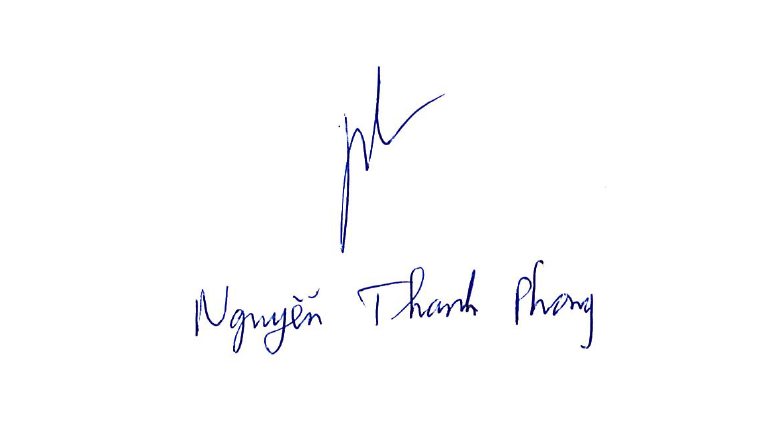 Nguyễn Thanh Phong